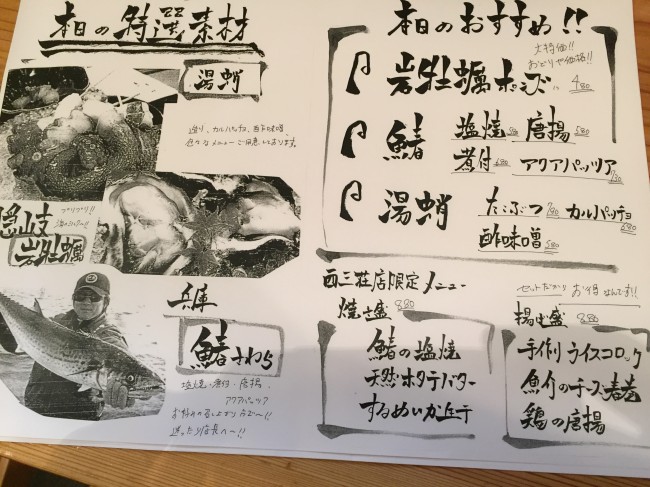 本日の特選素材
湯蛸
造り、カルパッチョ、酢味噌、
色々なメニューご用意しております。
プリプリ!!
岩牡蠣
兵庫
鰆 さわら
塩焼・煮付・唐揚、
アクアパッツア
お好みの召し上がり方で〜!!
迷ったら店長へ〜!!
本日のおすすめ!!
大特価!!
おどりや価格!!
岩牡蠣ポン酢 480
鰆 塩焼 580 唐揚 580
煮付 680 アクアパッツア 790
湯蛸 たこぶつ 790 カルパッチョ 580
酢味噌 580
西三荘店限定メニュー
焼き盛 880
鰆の塩焼
天然ホタテバター
するめいか正子
セットだから お得なんです!!
揚げ盛 880
手作りライスコロッケ
魚介のチーズ春巻
鶏の唐揚